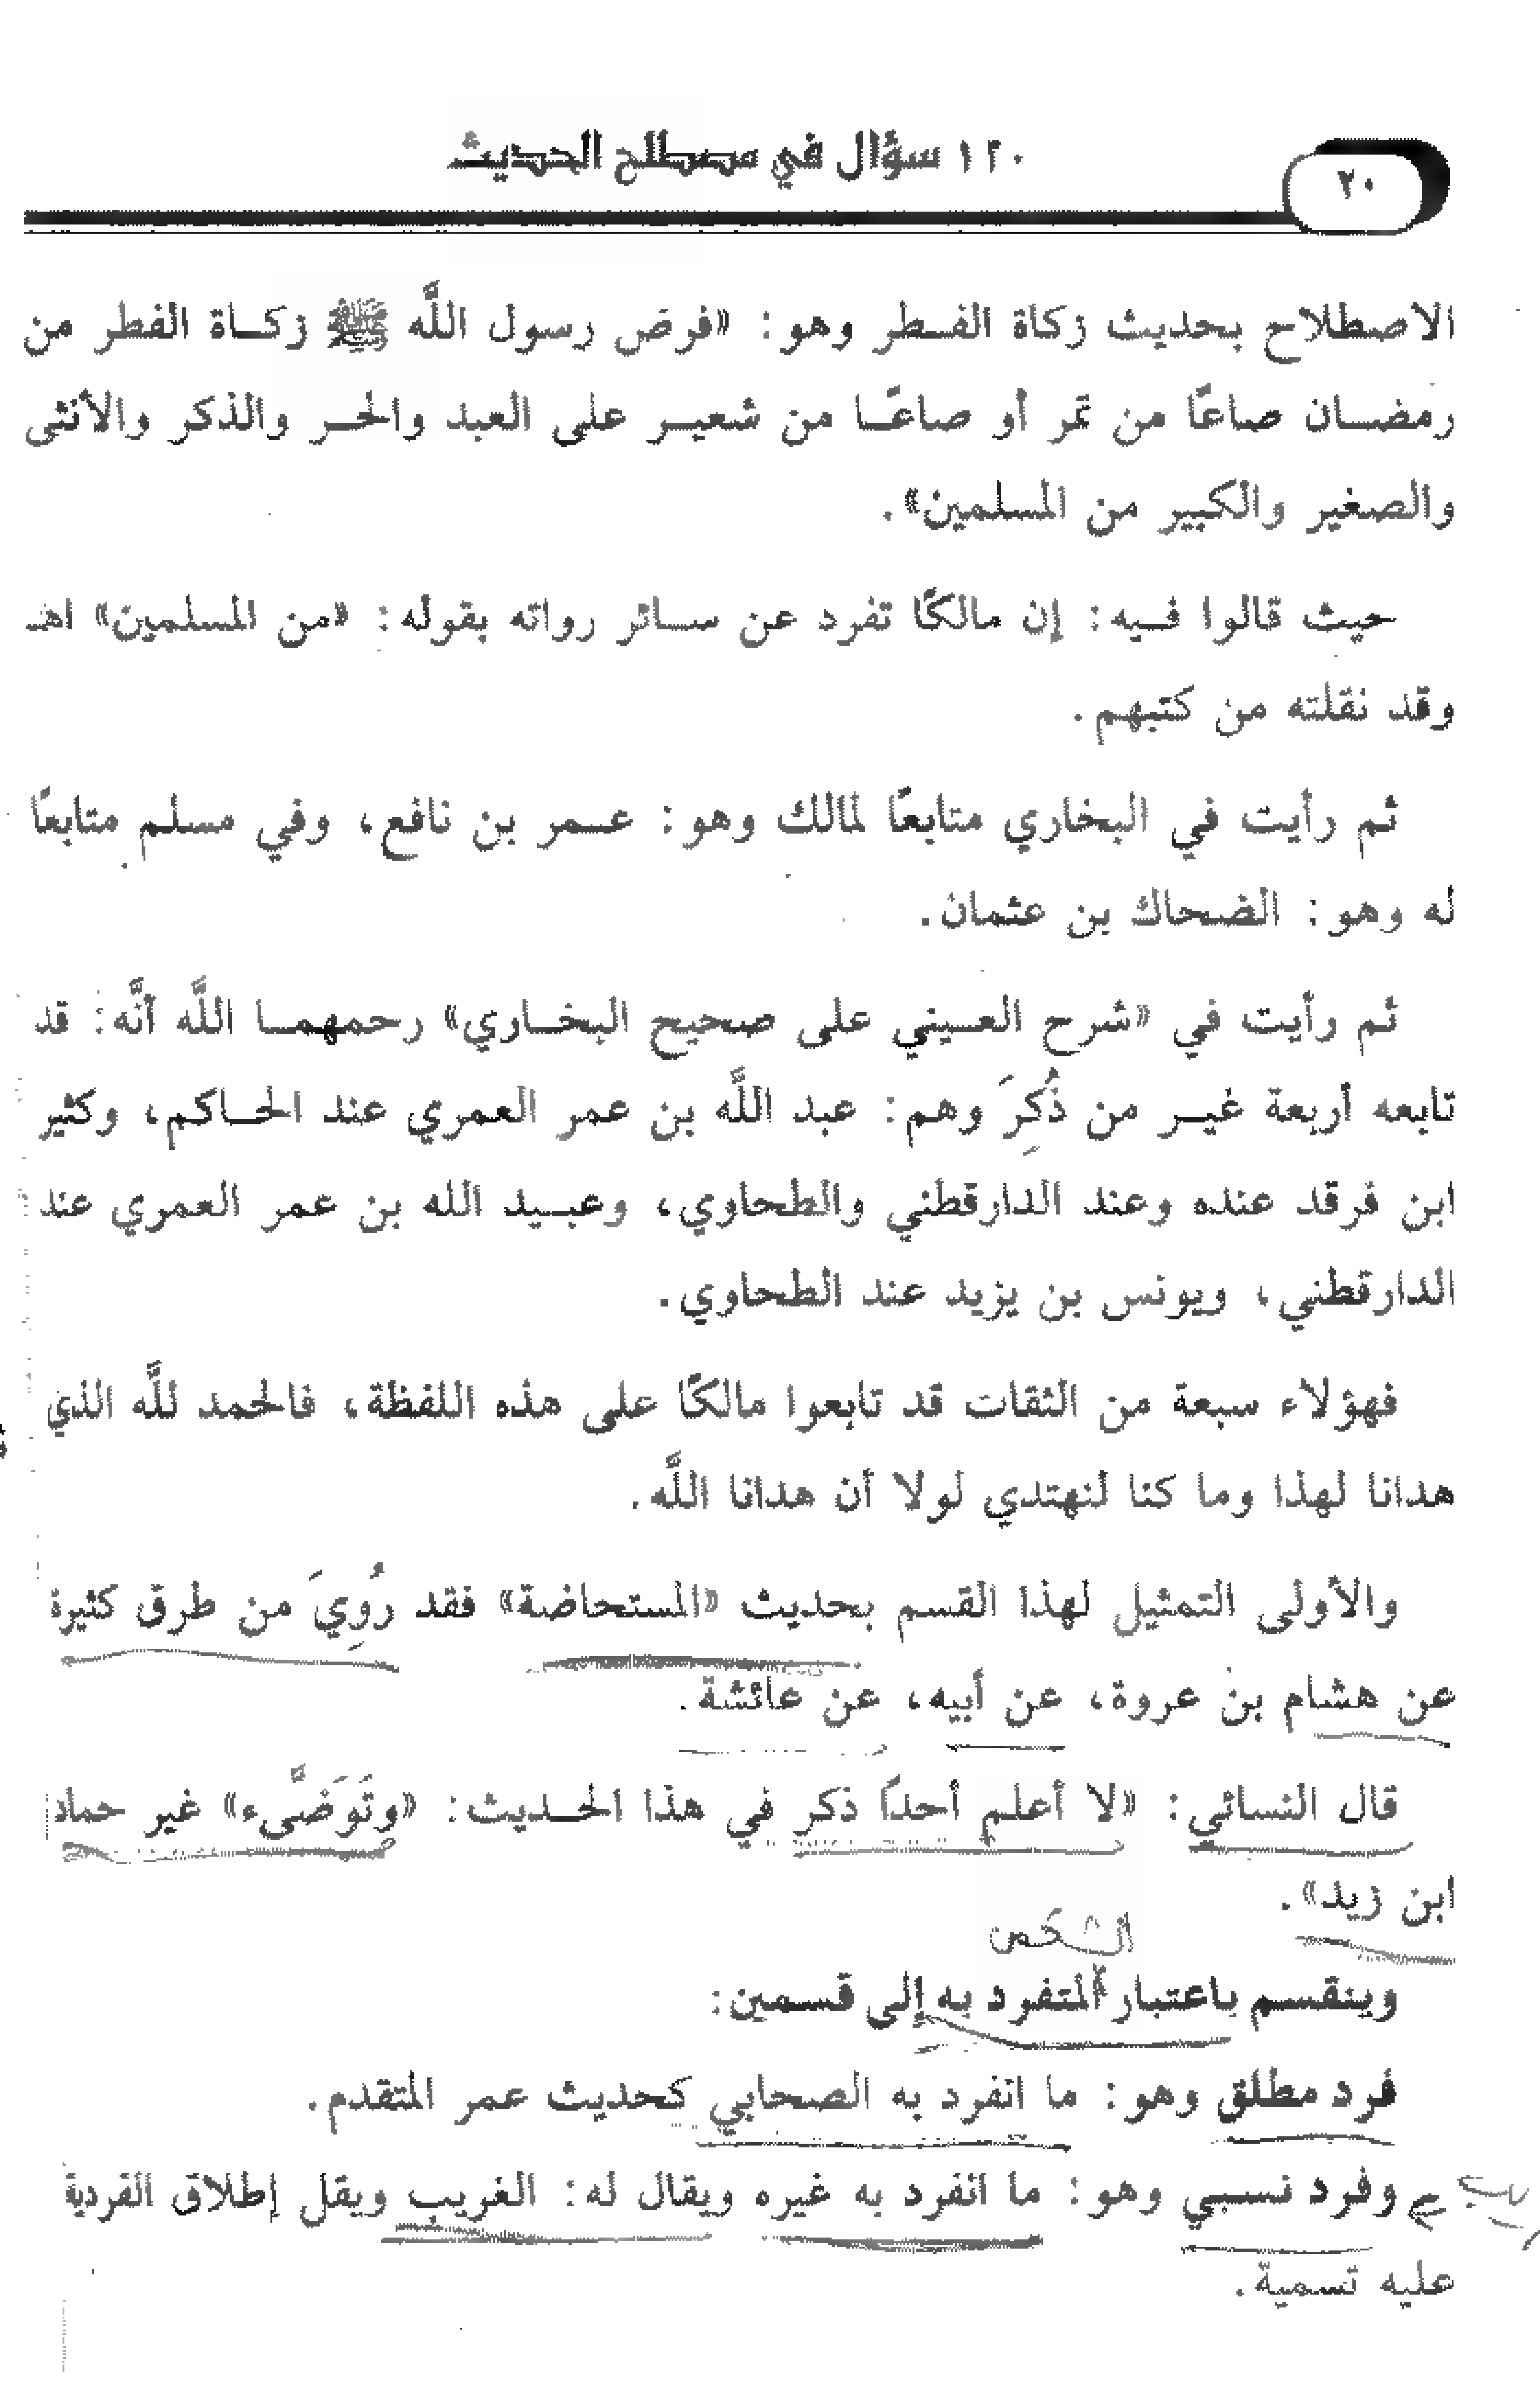 ١٢٠ سؤال في مصطلح الحديث
٢٠
الاصطلاح بحديث زكاة الفطر وهو: «فرض رسول اللَّه ﷺ زكاة الفطر من
رمضان صاعًا من تمر أو صاعًا من شعير على العبد والحر والذكر والأنثى
والصغير والكبير من المسلمين».
حيث قالوا فيه: إن مالكًا تفرد عن سائر رواته بقوله: «من المسلمين» اهـ
وقد نقلته من كتبهم.
ثم رأيت في البخاري متابعًا لمالك وهو: عمر بن نافع، وفي مسلم متابعًا
له وهو: الضحاك بن عثمان.
ثم رأيت في «شرح العيني على صحيح البخاري» رحمهما اللَّه أنَّه: قد
تابعه أربعة غير من ذُكِرَ وهم: عبد اللَّه بن عمر العمري عند الحاكم، وكثير
ابن فرقد عنده وعند الدارقطني والطحاوي، وعبيد الله بن عمر العمري عند
الدارقطني، ويونس بن يزيد عند الطحاوي.
فهؤلاء سبعة من الثقات قد تابعوا مالكًا على هذه اللفظة، فالحمد للَّه الذي
هدانا لهذا وما كنا لنهتدي لولا أن هدانا اللَّه.
والأولى التمثيل لهذا القسم بحديث «المستحاضة» فقد رُوِيَ من طرق كثيرة
عن هشام بن عروة، عن أبيه، عن عائشة.
قال النسائي: «لا أعلم أحدًا ذكر في هذا الحديث: «وتَوَضَّىء» غير حماد
ابن زيد».
وينقسم باعتبار المتفرد به إلى قسمين:
فرد مطلق وهو: ما انفرد به الصحابي كحديث عمر المتقدم.
وفرد نسبي وهو: ما انفرد به غيره ويقال له: الغريب ويقل إطلاق الفردية
عليه تسمية.